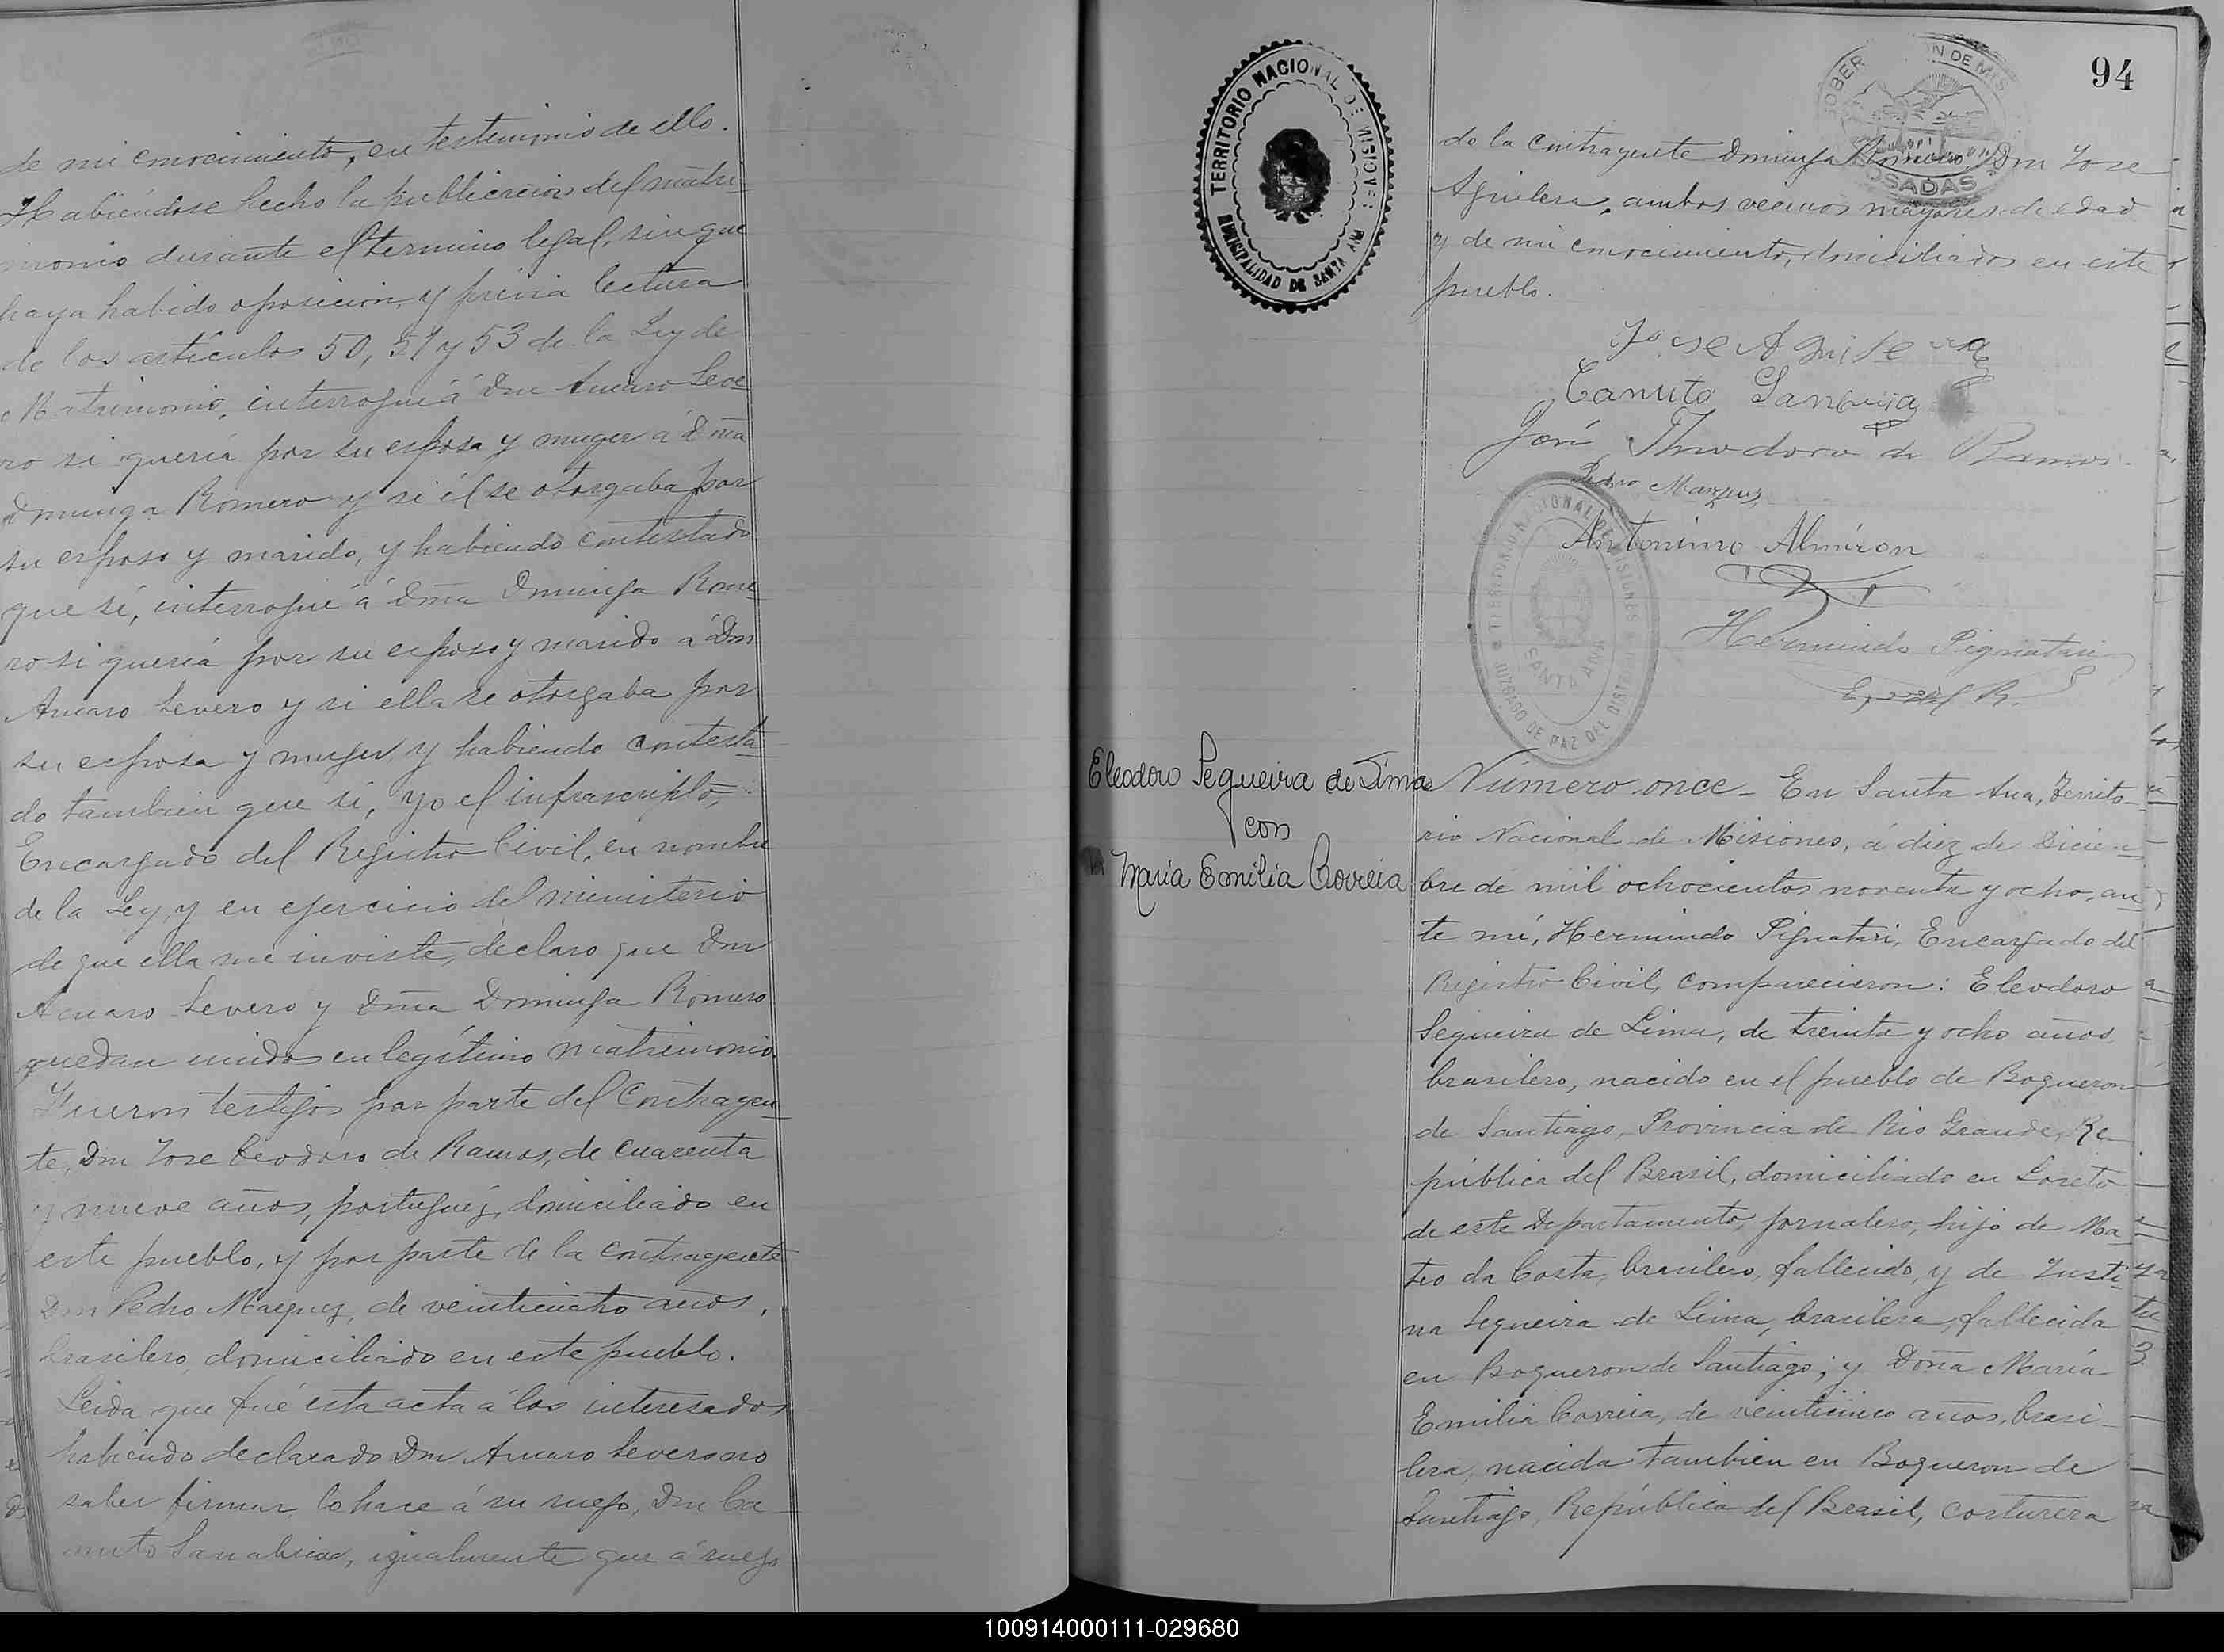 de mi conocimiento, en testimonio de ello.
Habiéndose hecho la publicacion del matri-
monio durante el termino legal, sin que
haya habido oposicion, y previa lectura
de los artículos 50, 51 y 53 de la Ley de
Matrimonio, interrogué á Don Amaro Seve
ro si quería por su esposa y muger á Doña
Dominga Romero y si él se otorgaba por
su esposo y marido, y habiendo contestado
que sí, interrogué á Doña Dominga Rome
ro si quería por su esposo y marido á Don
Amaro Severo y si ella se otorgaba por
su esposa y muger y habiendo contesta-
do tambien que si, yo el infrascripto,
Encargado del Registro Civil, en nombre
de la Ley, y en ejercicio del ministerio
de que ella me inviste, declaro que Don
Amaro Severo y Doña Dominga Romero
quedan unidos en legítimo matrimonio.
Fueron testigos por parte del Contrayen-
te, Don Jose Teodoro de Ramos, de cuarenta
y nueve años, portugués, domiciliado en
este pueblo, y por parte de la contrayente
Don Pedro Marquez, de veinticuatro años,
brasilero, domiciliado en este pueblo.
Leida que fué esta acta á los interesados
habiendo declarado Don Amaro Severo no
saber firmar lo hace á su ruego, Don Ca-
nuto Sanabria, igualmente que á ruego
94
TERRITORIO NACIONAL DE MISIONES
MUNICIPALIDAD DE SANTA ANA
POSADAS
de la contrayente Dominga Romero, Don Jose
Aguilera, ambos vecinos mayores de edad
y de mi conocimiento, domiciliados en este
pueblo.
Jose Aguilera
Canuto Sanabria
José Theodoro de Ramos
Pedro Marquez
Antonino Almiron
Hermindo Pignatari
E. del R.
TERRITORIO NACIONAL DE MISIONES
SANTA ANA
JUZGADO DE PAZ DEL
Eleodoro Sequeira de Lima
con
Maria Emilia Correia
Número once - En Santa Ana, Territo-
rio Nacional de Misiones, á diez de Diciem-
bre de mil ochocientos noventa y ocho, an-
te mí, Hermindo Pignatari, Encargado del
Registro Civil, comparecieron: Eleodoro
Sequeira de Lima, de treinta y ocho años,
brasilero, nacido en el pueblo de Boqueron
de Santiago, Provincia de Rio Grande, Re-
pública del Brasil, domiciliado en Loreto
de este Departamento, jornalero, hijo de Ma-
teo da Costa, brasilero, fallecido, y de Justi-
na Sequeira de Lima, brasilera, fallecida
en Boqueron de Santiago; y Doña María
Emilia Correia, de veinticinco años, brasi-
lera, nacida tambien en Boqueron de
Santiago, República del Brasil, costurera
100914000111-029680